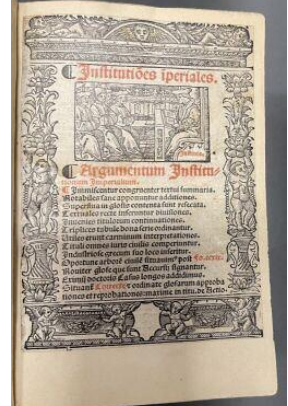 Institutiões īperiales.
Argumentum Institu-
tionum Imperialium.
Inmiscentur congruenter textui summaria.
Notabiles sane apponuntur additiones.
Superflua in glosis contenta sunt resecata.
Textuales recte inseruntur divisiones.
Invenies titulorum continuationes.
Triplices tabule bona serie ordinantur.
Utiles erunt carminum interpretationes.
Tituli omnes iuris civilis componuntur.
suo loco
Oportune arborē civilē situatam post
Noviter glose que sunt Accursii signantur.
Eximii doctoris Casus longos addidimus.
Situanť Correcte ordinate glosarum approba
tiones et reprobationes: maxime in titu. de Actio